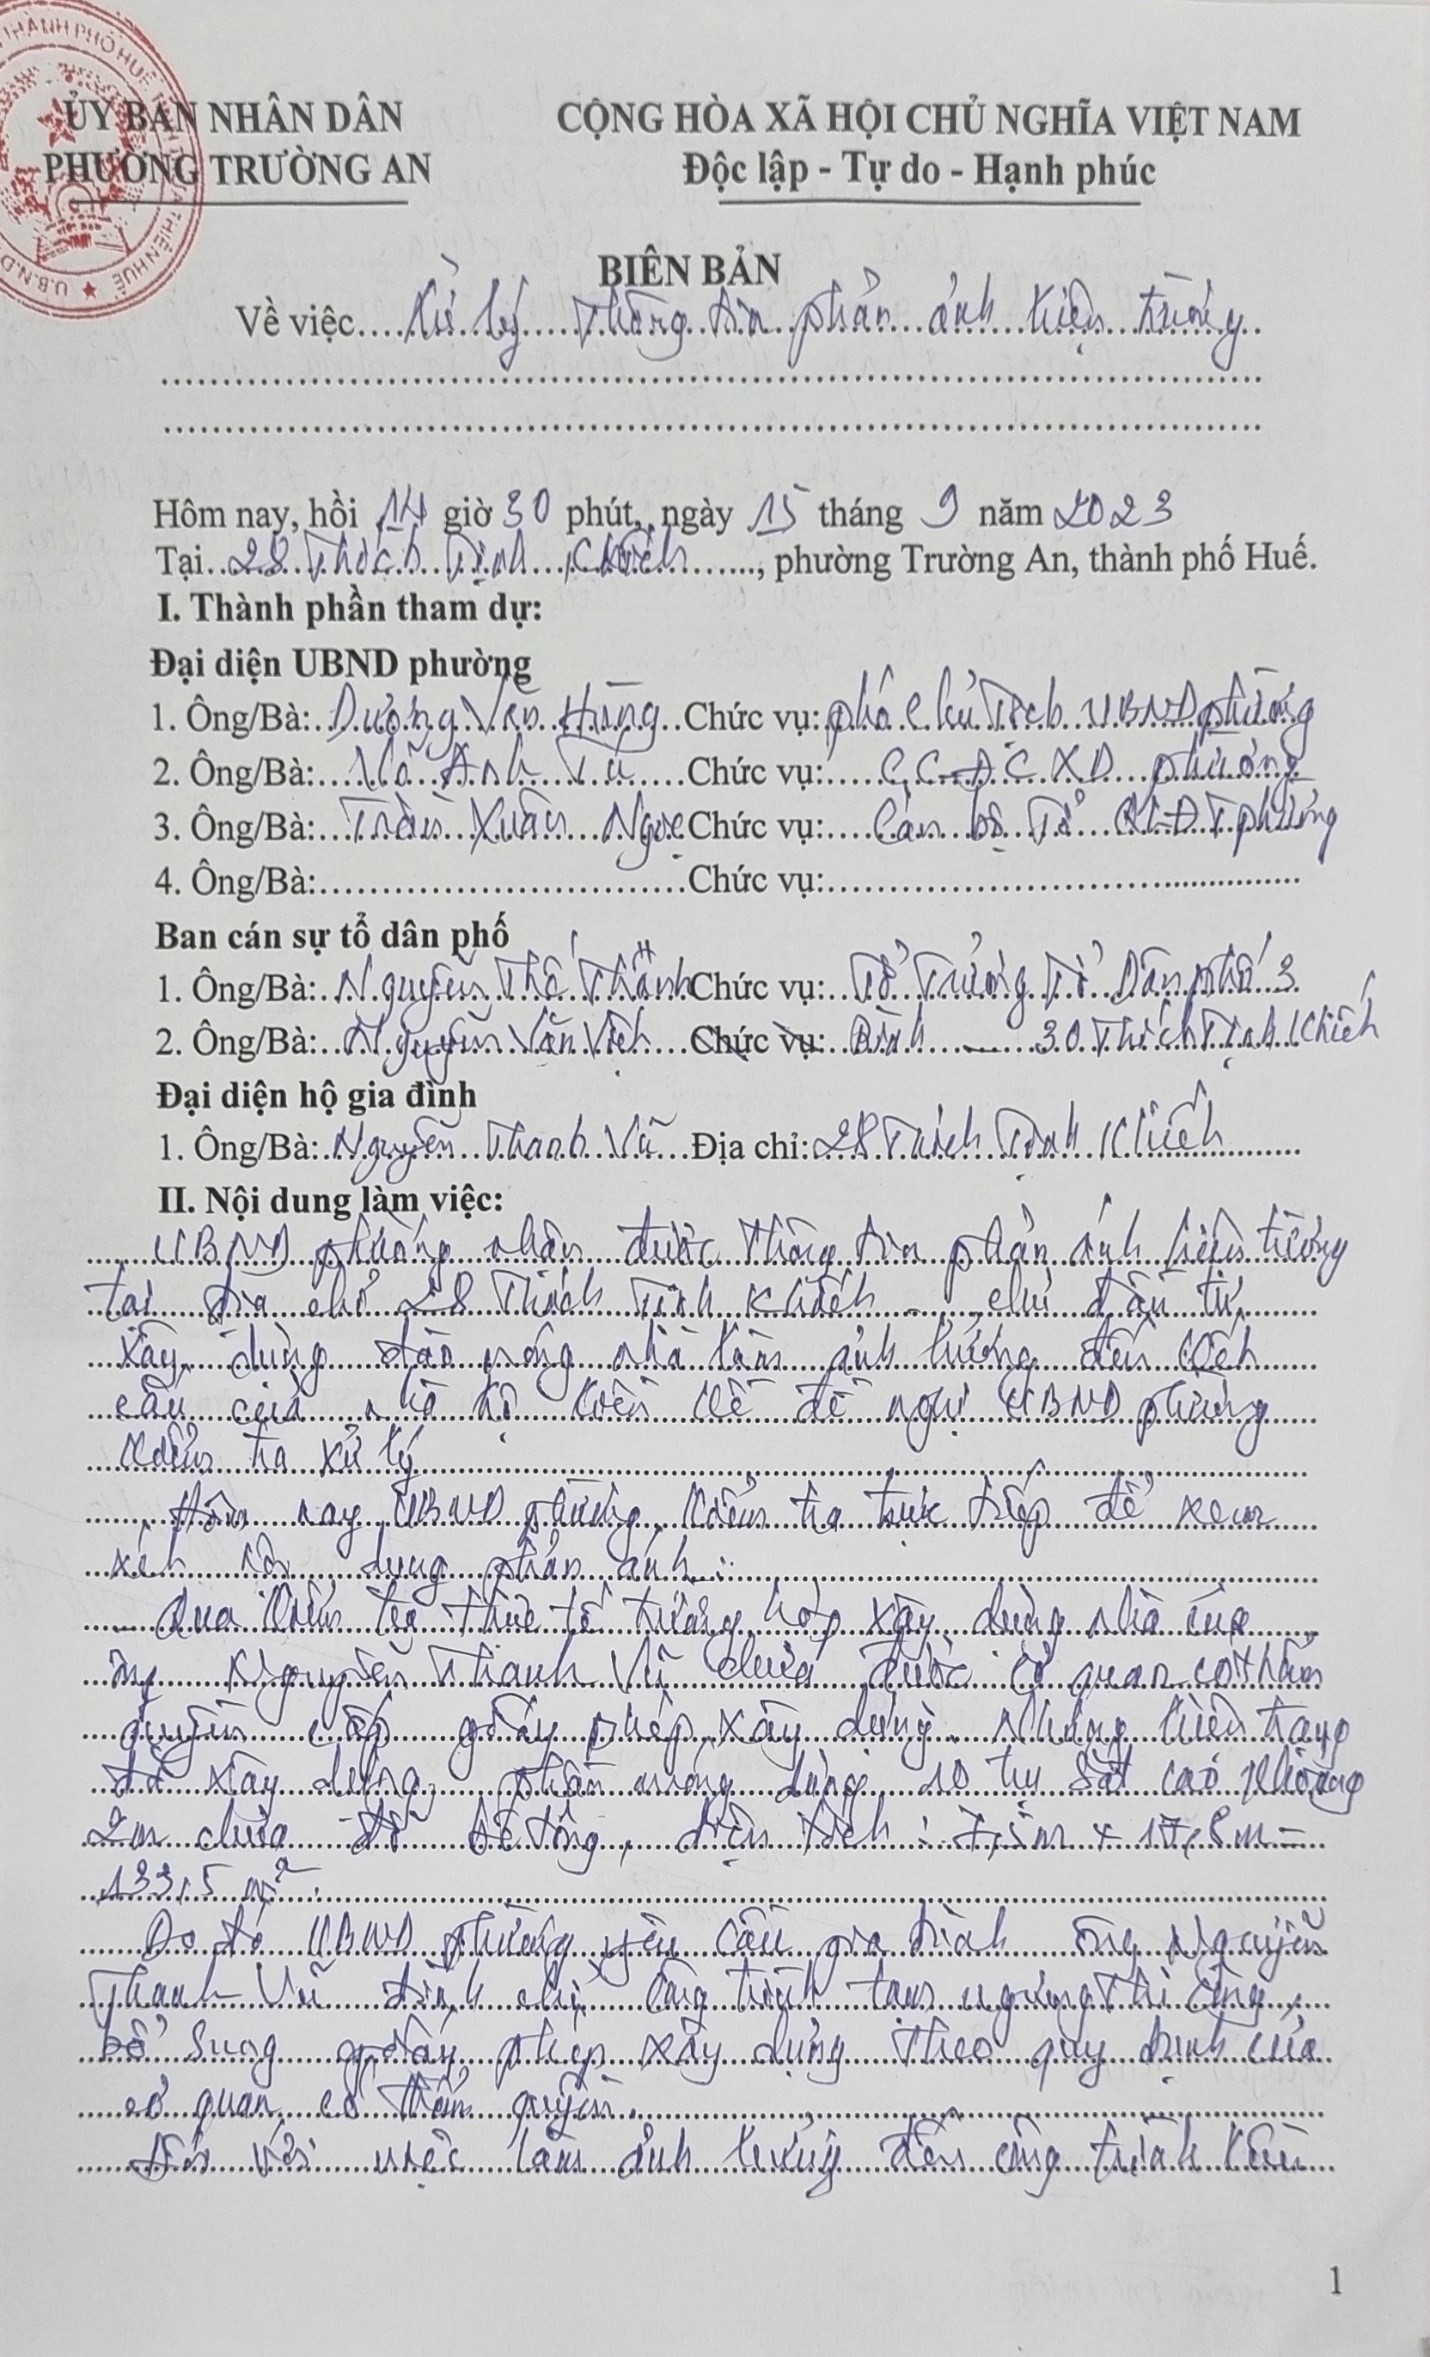 THÀNH PHỐ HUẾ T. THỪA THIÊN HUẾ ★ U.B.N.D
ỦY BAN NHÂN DÂN
PHƯỜNG TRƯỜNG AN
CỘNG HÒA XÃ HỘI CHỦ NGHĨA VIỆT NAM
Độc lập - Tự do - Hạnh phúc
BIÊN BẢN
Về việc....Xử lý thông tin phản ánh hiện trường
Hôm nay, hồi 14 giờ 30 phút, ngày 15 tháng 9 năm 2023
Tại..28 Thích Tịnh Khiết......, phường Trường An, thành phố Huế.
I. Thành phần tham dự:
Đại diện UBND phường
1. Ông/Bà: Dương Văn Hùng Chức vụ: phó Chủ Tịch UBND phường
2. Ông/Bà: Võ Anh Tú Chức vụ: CCĐCXD phường
3. Ông/Bà: Trần Xuân Ngọc Chức vụ: Cán bộ Tổ QLĐT phường
4. Ông/Bà:.............................Chức vụ:.......................................
Ban cán sự tổ dân phố
1. Ông/Bà: Nguyễn Thế Thành Chức vụ: Tổ Trưởng Tổ Dân phố 3
2. Ông/Bà: Nguyễn Văn Việt Chức vụ: - 30 Thích Tịnh Khiết
Đại diện hộ gia đình
1. Ông/Bà: Nguyễn Thanh Vũ Địa chỉ: 28 Thích Tịnh Khiết
II. Nội dung làm việc:
UBND phường nhận được thông tin phản ánh hiện trường
tại địa chỉ 28 Thích Tịnh Khiết - chủ đầu tư
xây dựng đào móng nhà làm ảnh hưởng đến kết
cấu của nhà hộ liền kề đề nghị UBND phường
kiểm tra xử lý
Hôm nay UBND phường kiểm tra trực tiếp để xem
xét nội dung phản ánh:
Qua kiểm tra thực tế trường hợp xây dựng nhà của
ông Nguyễn Thanh Vũ chưa được cơ quan có thẩm
quyền cấp giấy phép xây dựng. Nhưng hiện trạng
đã xây dựng phần móng dựng 10 trụ sắt cao khoảng
2m chưa đổ bê tông, diện tích: 7,5m x 17,8m =
133,5 m²
Do đó UBND phường yêu cầu gia đình ông Nguyễn
Thanh Vũ đình chỉ công trình tạm ngưng thi công,
bổ sung giấy phép xây dựng theo quy định của
cơ quan có thẩm quyền.
Đối với việc làm ảnh hưởng đến công trình liền
1